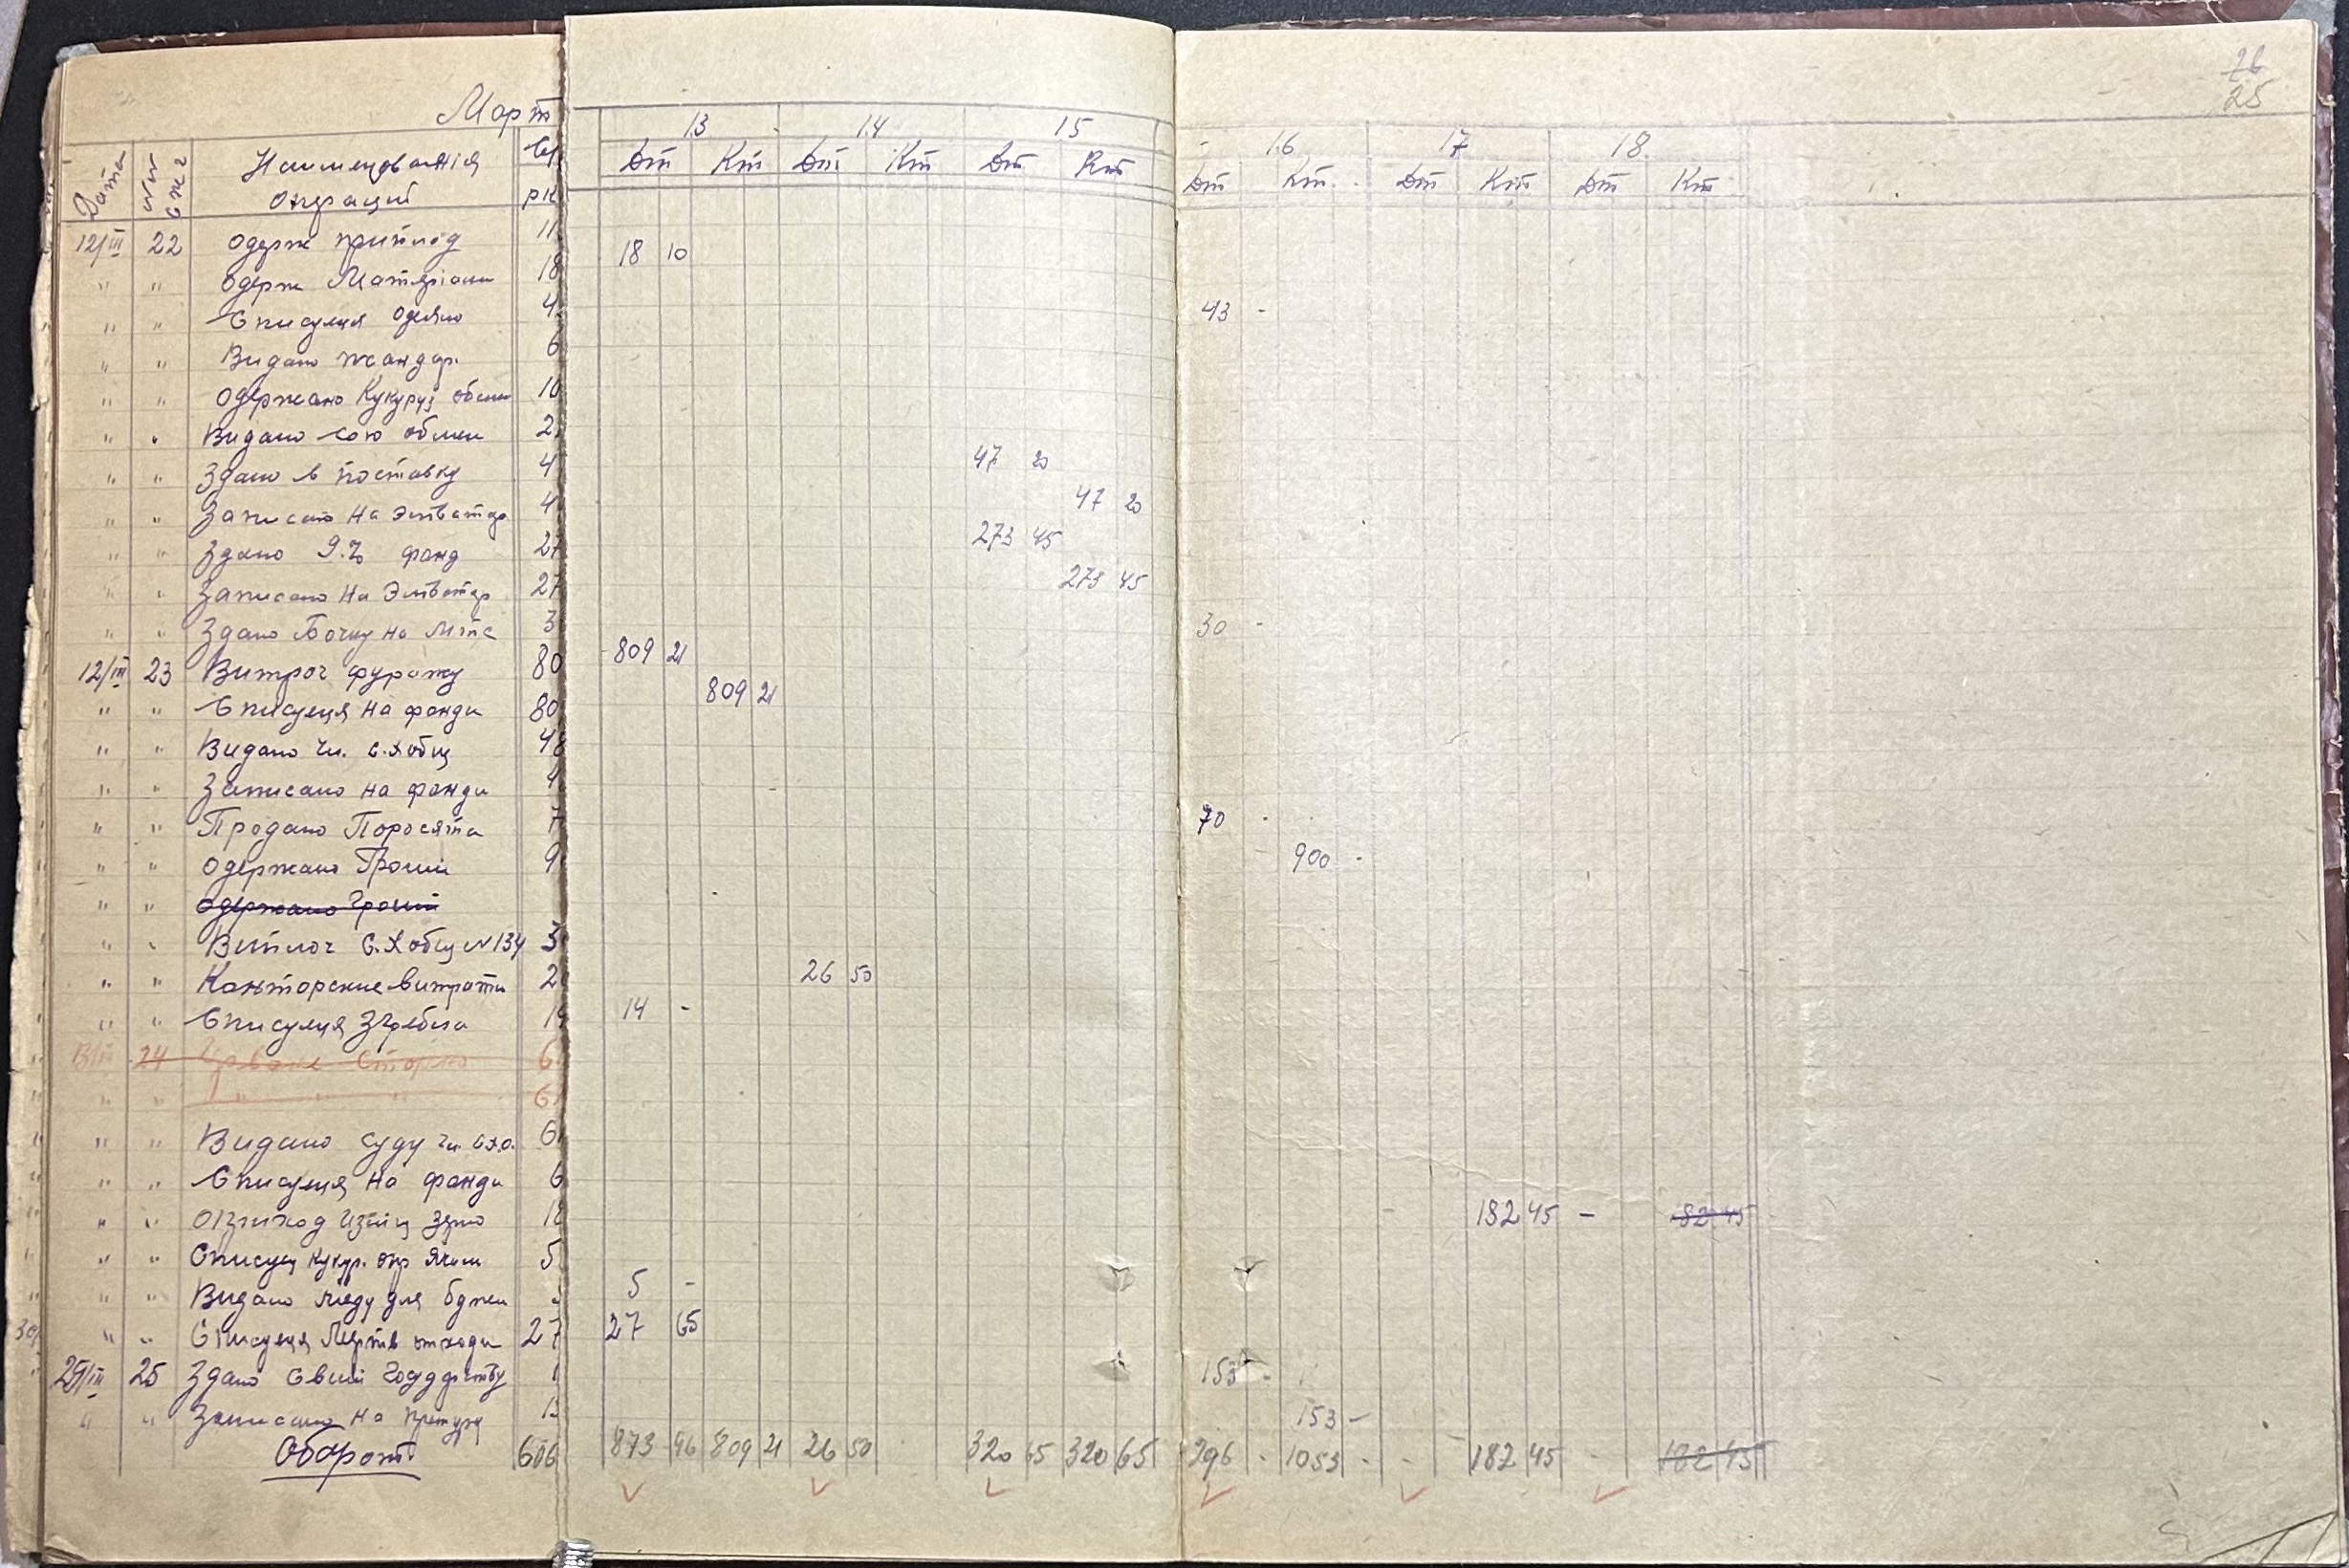 26
25
Март
13 14 15 16 17 18
Дата №№ Наименования
операций
Дт Кт Дт Кт Дт Кт Дт Кт Дт Кт Дт Кт
12/III 22 Одерж приплод 11 18 10
" " Одерж Матеріали 18
" " Списуеця одеяло 4 43 -
" " Видано жандар. 6
" " Одержано Кукуруз обмен 10
" " Видано сою обмен 2
" " Здано в поставку 4 47 20
" " Записано На Элеватор 4 47 20
" " Здано фонд 27 273 45
" " Записано На Элеватор 27 273 45
" " Здано Бочку на Мтс 3 30 -
12/III 23 Витрач фуражу 80 809 21
" " Списуеця на фонди 80 809 21
" " Видано Чл. с.х общ 48
" " Записано на фонди 4
" " Продано Поросята 7 70 -
" " Одержано Грошй 9 900 -
" " Одержано Грошй
" " Виплоч С.Х общ N 134 3
" " Канторские витрати 2 26 50
" " Списуеця 14 14 -
13/III 24 Сторно 6
" " " " " 6
" " Видано суду чл. с.х.о. 6
" " Списуеця на фонди 6
" " зерно 18 182 45 - 182 45
" " Списуец кукур. 5
" " Видано меду для бджол 5 -
" " Списуеця Мертв отходи 27 27 65
29/III 25 Здано Свиней Государству 1 153 -
" " Записано на 1 153 -
Оборот 606 873 96 809 21 26 50 320 65 320 65 296 - 1053 - - 182 45 - 182 45